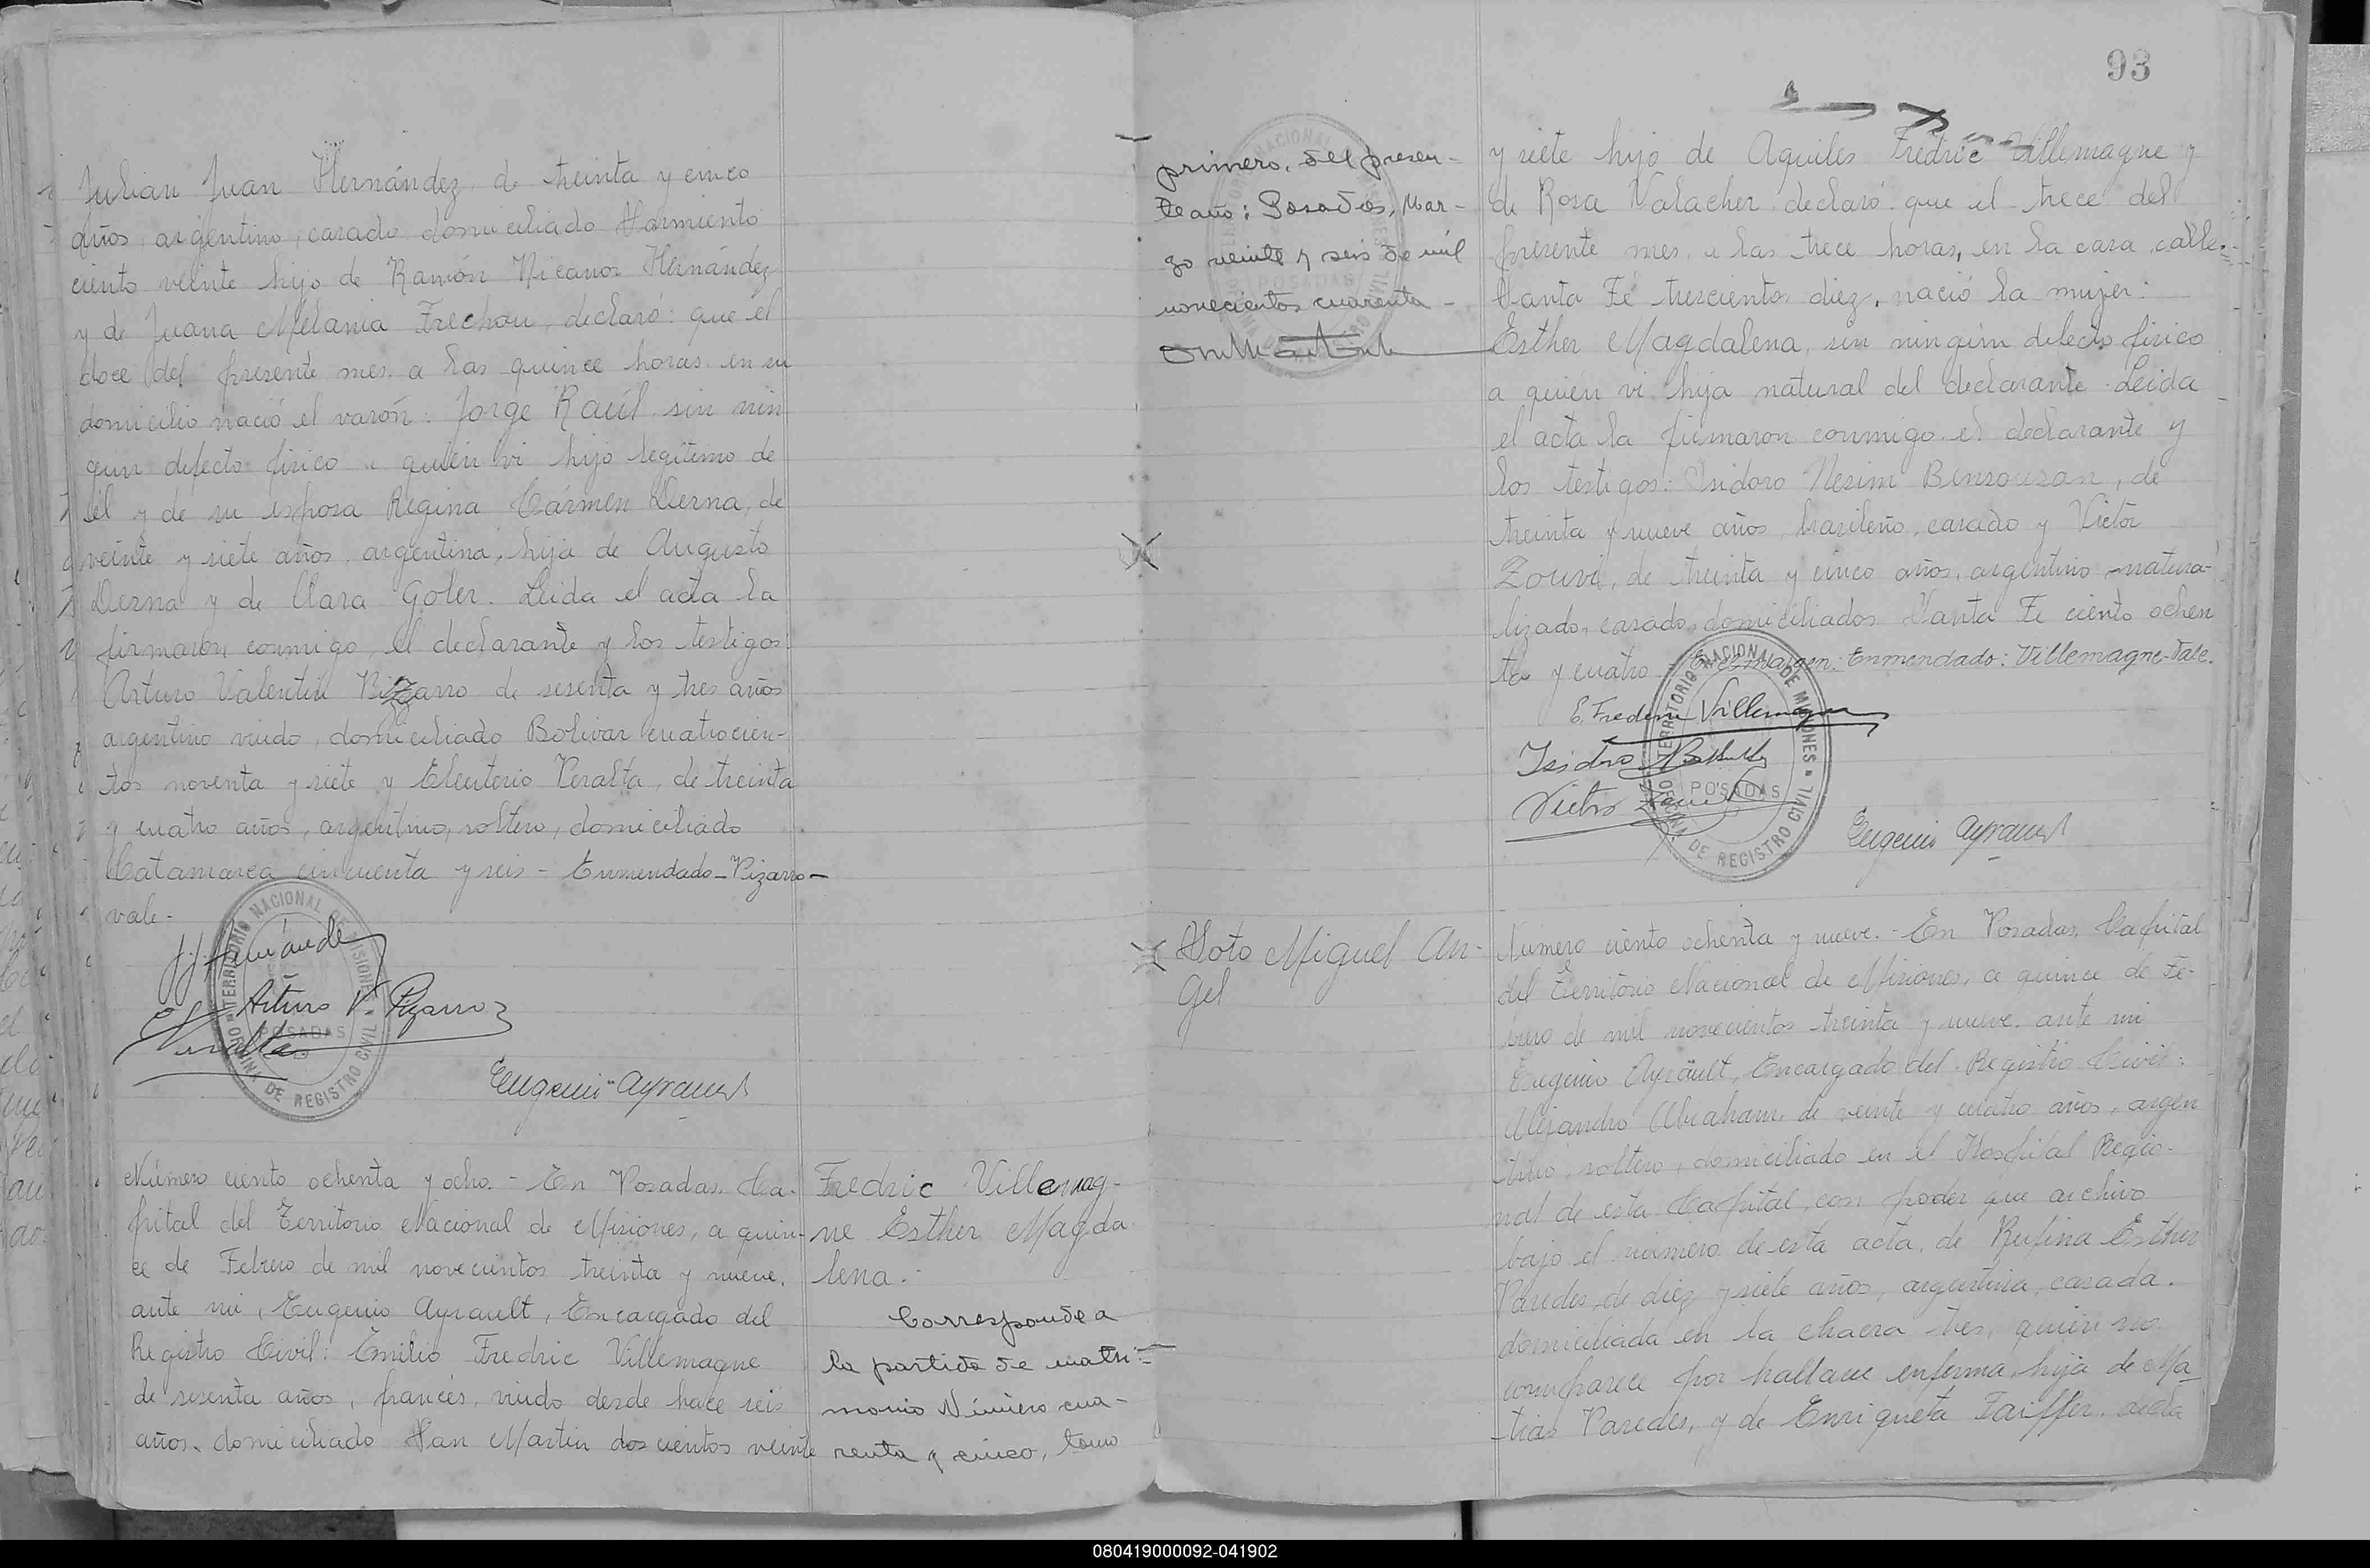 Julian Juan Hernández, de treinta y cinco
años, argentino, casado, domiciliado Sarmiento
ciento veinte hijo de Ramón Nicanor Hernández
y de Juana Melania Frechou, declaró: que el
doce del presente mes a las quince horas en su
domicilio nació el varón: Jorge Raúl, sin nin
gun defecto fisico a quién vi hijo legítimo de
él y de su esposa Regina Cármen Derna, de
veinte y siete años, argentina, hija de Augusto
Derna y de Clara Goler. Leida el acta la
firmaron conmigo, el declarante y los testigos:
Arturo Valentín Pizarro de sesenta y tres años
argentino viudo, domiciliado Bolivar cuatrocien-
tos noventa y siete y Eleuterio Peralta, de treinta
y cuatro años, argentino, soltero, domiciliado
Catamarca cincuenta y seis - Enmendado - Pizarro -
vale -
J. J. Hernández
Arturo V. Pizarro
E. Peralta
TERRITORIO NACIONAL DE MISIONES
POSADAS
OFICINA DE REGISTRO CIVIL
Eugenio Ayrault
Número ciento ochenta y ocho. - En Posadas, Ca-
pital del Territorio Nacional de Misiones, a quin-
ce de Febrero de mil novecientos treinta y nueve,
ante mi, Eugenio Ayrault, Encargado del
Registro Civil: Emilio Fredric Villemagne
de sesenta años, francés, viudo desde hace seis
años, domiciliado San Martin doscientos veinte
Fredric Villemag-
ne Esther Magda
lena.-
Corresponde a
la partida de matri-
monio Número cua-
renta y cinco, tomo
93
primero, del presen-
te año: Posadas, Mar-
zo veinte y seis de mil
novecientos cuarenta -
y siete hijo de Aquiles Fredric Villemagne y
de Rosa Valacher declaró: que el trece del
presente mes a las trece horas, en la casa, calle
Santa Fé trescientos diez, nació la mujer:
Esther Magdalena, sin ningún defecto fisico
a quién vi hija natural del declarante. Leida
el acta la firmaron conmigo el declarante y
los testigos: Isidoro Nesim Bensousan, de
treinta y nueve años, brasileño, casado y Victor
Zouvi, de treinta y cinco años, argentino natura-
lizado, casado, domiciliados Santa Fe ciento ochen
ta y cuatro - En el margen: Enmendado: Villemagne-Vale.
E. Frederic Villemagne
Isidro
Victor Zouvi
TERRITORIO NACIONAL DE MISIONES
POSADAS
OFICINA DE REGISTRO CIVIL
Eugenio Ayrault
Soto Miguel An-
gel
Número ciento ochenta y nueve. - En Posadas, Capital
del Territorio Nacional de Misiones, a quince de Fe-
brero de mil novecientos treinta y nueve, ante mi
Eugenio Ayrault, Encargado del Registro Civil:
Alejandro Abraham, de veinte y cuatro años, argen
tino, soltero, domiciliado en el Hospital Regio-
nal de esta Capital, con poder que archivo
bajo el número de esta acta, de Rufina Esther
Paredes, de diez y siete años, argentina, casada,
domiciliada en la chacra tres, quién no
comparece por hallarse enferma, hija de Ma
tias Paredes, y de Enriqueta Faiffer, decla
080419000092-041902